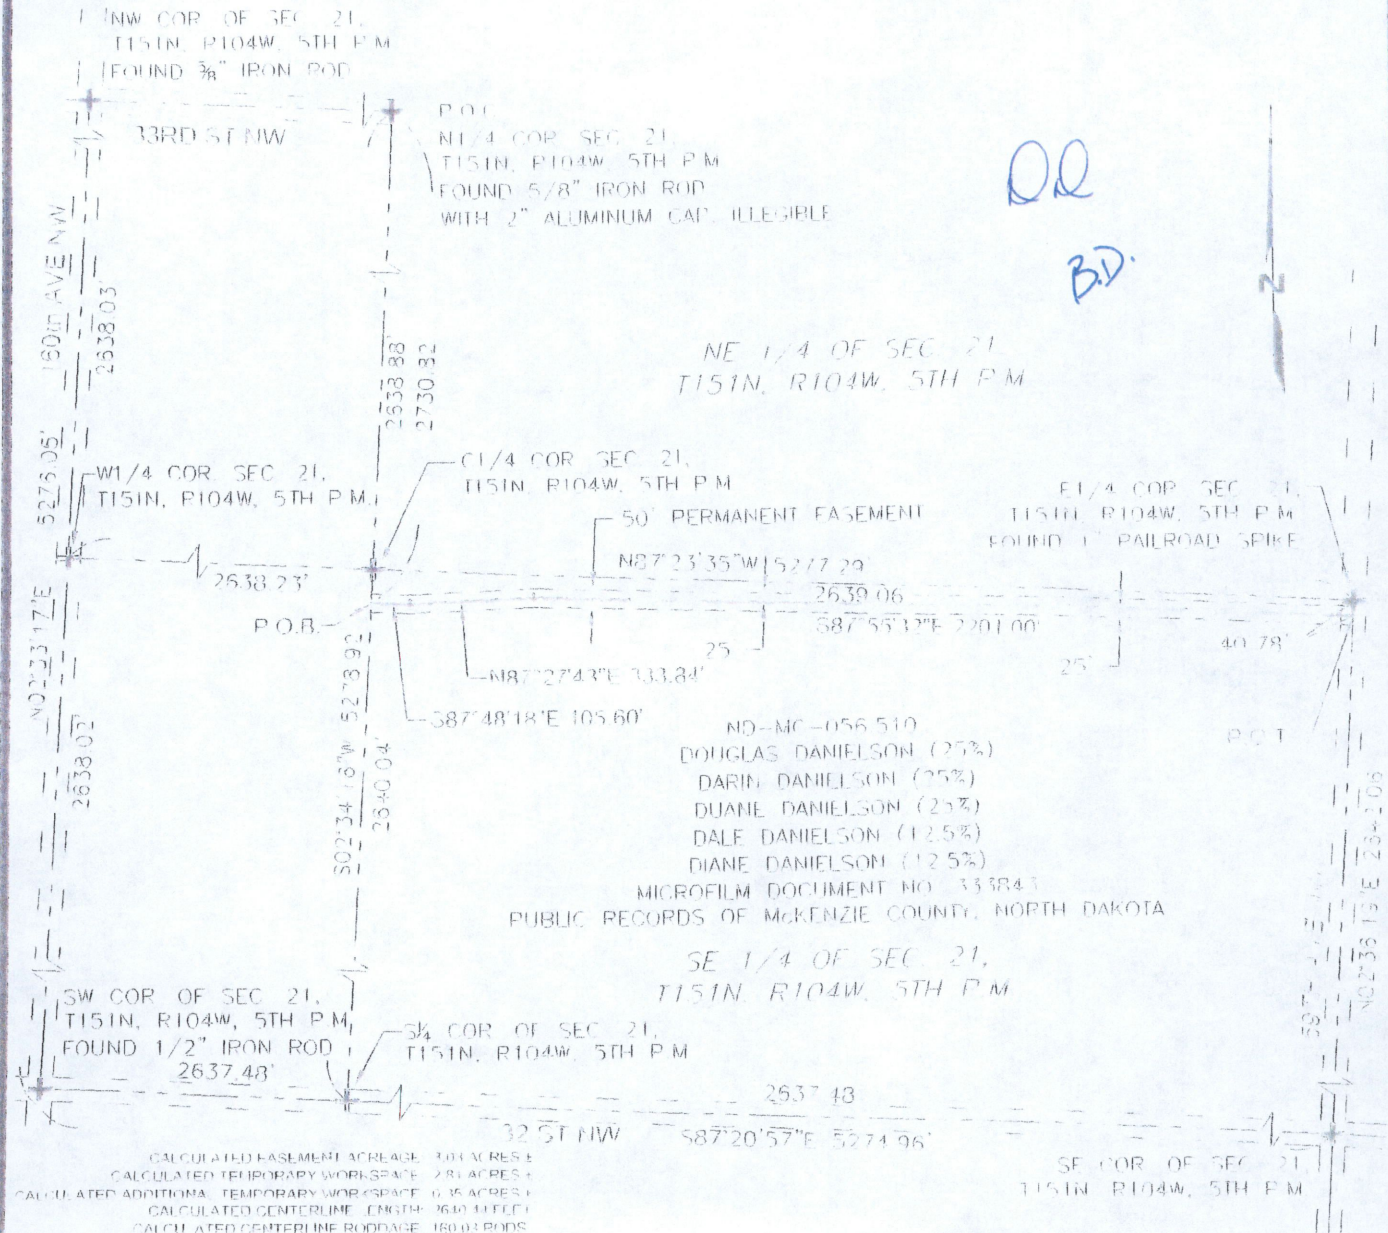 NW COR OF SEC 21,
T151N, R104W, 5TH P M
FOUND 3/8" IRON ROD
33RD ST NW
N1/4 COR SEC 21,
T151N, R104W, 5TH P M
FOUND 5/8" IRON ROD
WITH 2" ALUMINUM CAP, ILLEGIBLE
DD
B.D.
N
160th AVE NW
2638.03'
2638 88'
2730.82
NE 1/4 OF SEC 21
T151N, R104W, 5TH P M
5276.05'
W1/4 COR SEC 21,
T151N, R104W, 5TH P M
C1/4 COR SEC 21,
T151N, R104W, 5TH P M
50' PERMANENT EASEMENT
E1/4 COR SEC 21,
T151N R104W, 5TH P M
FOUND 1" RAILROAD SPIKE
N87°23'35"W 5277 29'
2638.23'
2639 06
P.O.B.
S87°55'32"E 2201.00'
40.78'
25'
25'
N87°27'43"E 333.84'
S87°48'18"E 105 60'
N02°33'17"E
2638.02'
S02°34'16"W 5278 92
2640 04'
P O T
ND-MC-056 510
DOUGLAS DANIELSON (25%)
DARIN DANIELSON (25%)
DUANE DANIELSON (25%)
DALE DANIELSON (12.5%)
DIANE DANIELSON (12 5%)
MICROFILM DOCUMENT NO 333843
PUBLIC RECORDS OF McKENZIE COUNTY, NORTH DAKOTA
SE 1/4 OF SEC 21,
T151N R104W, 5TH P M
SW COR OF SEC 21,
T151N, R104W, 5TH P M,
FOUND 1/2" IRON ROD
2637.48'
S1/4 COR OF SEC 21,
T151N, R104W, 5TH P M
2637 48
32 ST NW
S87°20'57"E 5274 96'
SE COR OF SEC 21
T151N R104W, 5TH P M
CALCULATED EASEMENT ACREAGE ACRES ±
CALCULATED TEMPORARY WORKSPACE ACRES ±
CALCULATED ADDITIONAL TEMPORARY WORKSPACE ACRES ±
CALCULATED CENTERLINE LENGTH FEET
CALCULATED CENTERLINE RODDAGE RODS